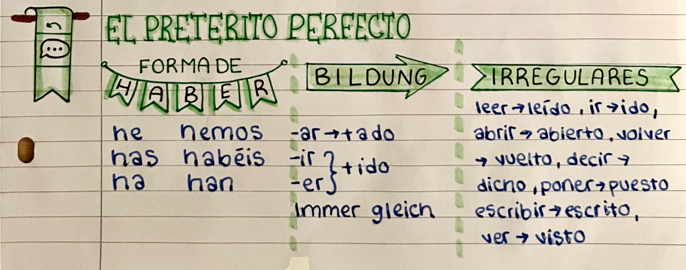 EL PRETERITO PERFECTO
FORMA DE
HABER
he hemos
has habéis
ha han
BILDUNG
-ar → + ado
-ir } + ido
-er
Immer gleich
IRREGULARES
leer → leído, ir → ido,
abrir → abierto, volver
→ vuelto, decir →
dicho, poner → puesto
escribir → escrito,
ver → visto